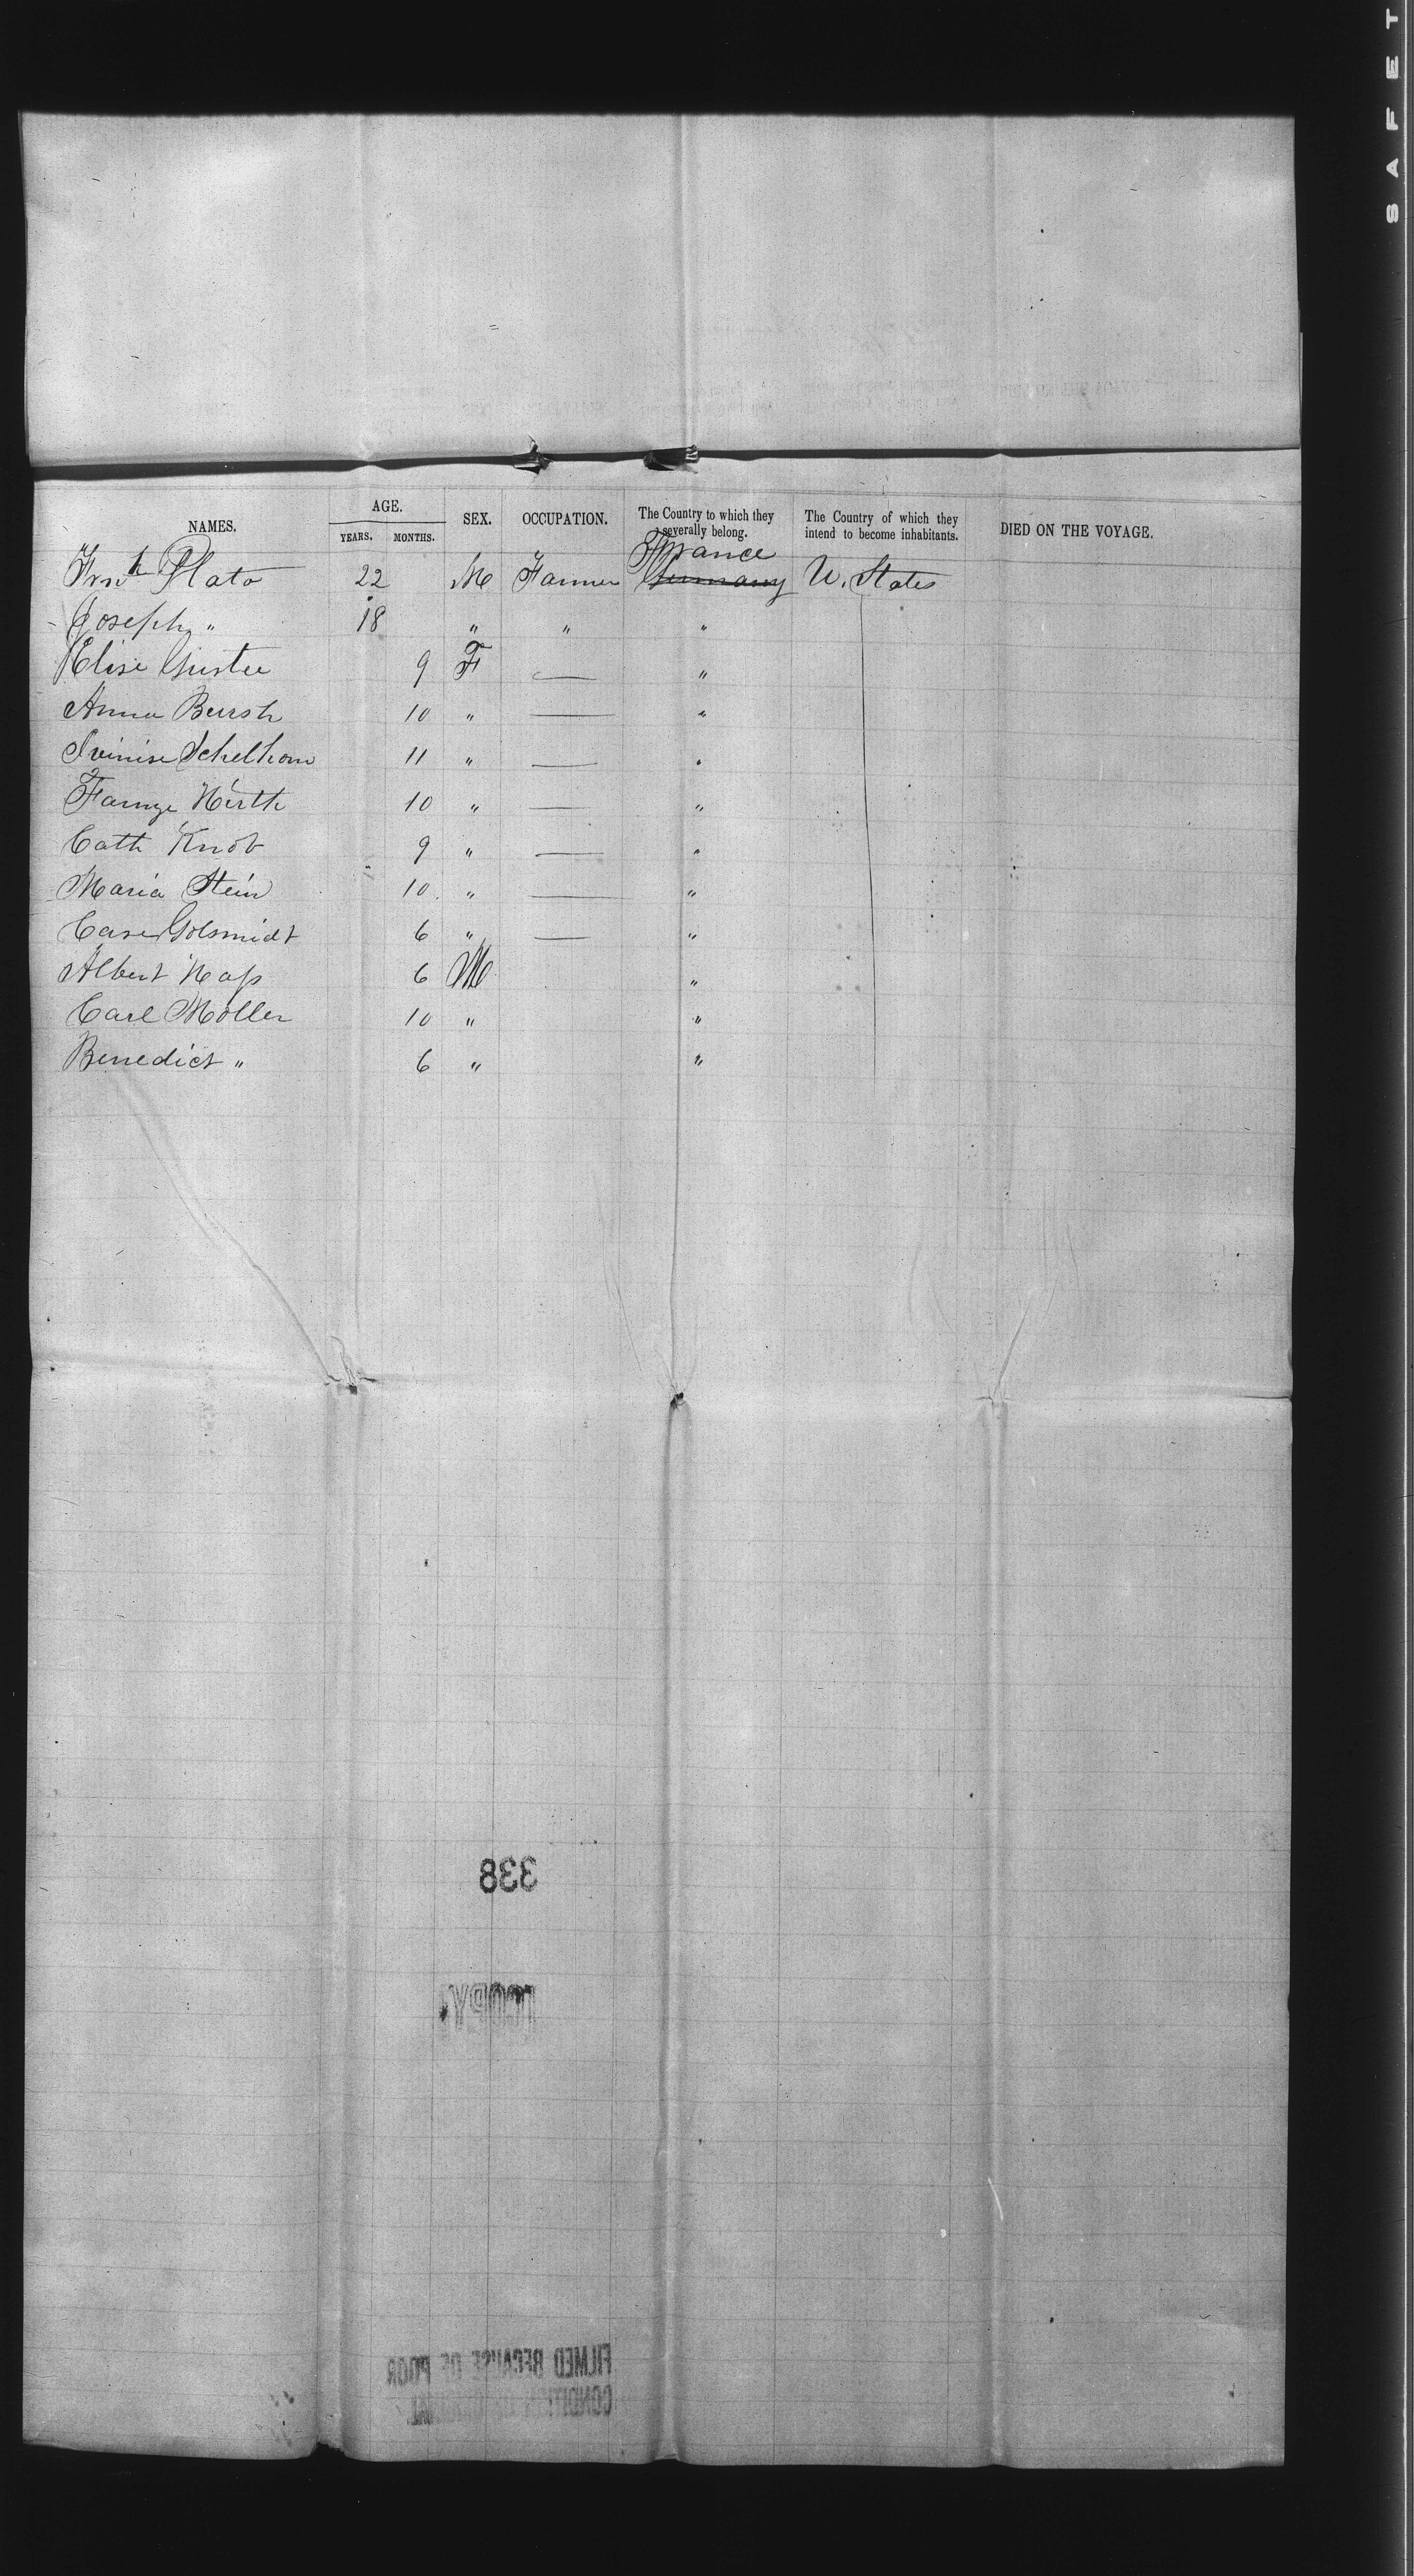 SAFET
NAMES. AGE. YEARS. MONTHS. SEX. OCCUPATION. The Country to which they severally belong. The Country of which they intend to become inhabitants. DIED ON THE VOYAGE.
France
Plato 22 M Farmer Germany U. States
Joseph " 18 " " "
Elise 9 F — "
Anna Bursh 10 " — "
Schelhorn 11 " — "
10 " — "
Cath Knob 9 " — "
Maria Stein 10 " — "
Golsmidt 6 " — "
Albert 6 M "
Carl Möller 10 " "
Benedict " 6 " "
338
COPY
FILMED BECAUSE OF POOR
CONDITION OF ORIGINAL